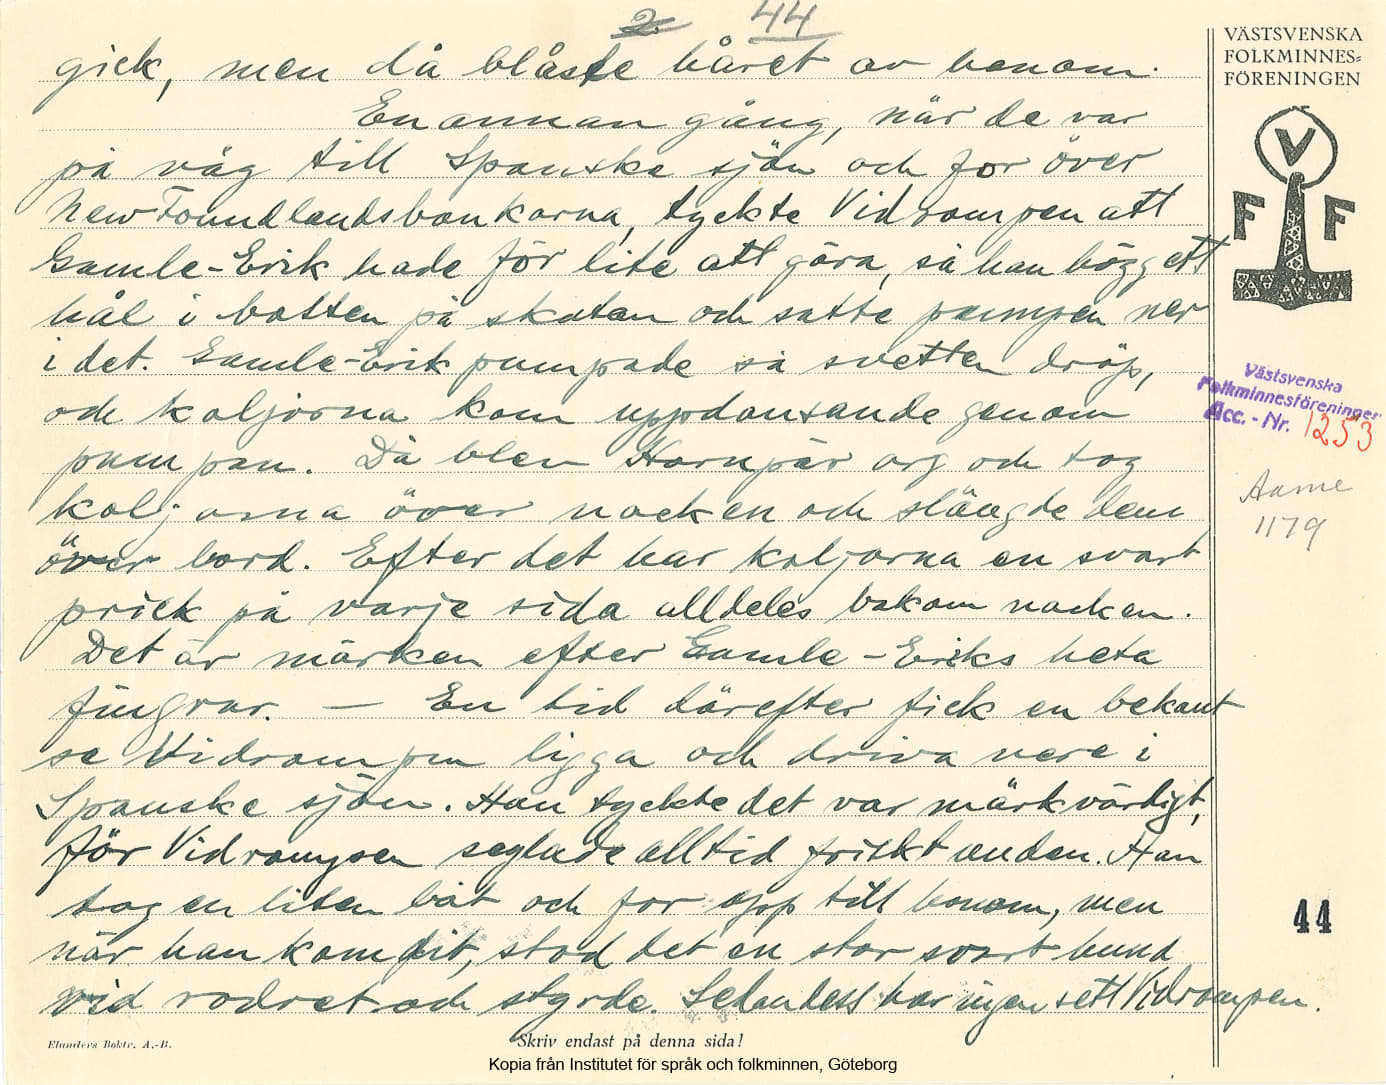 2. 44
VÄSTSVENSKA
FOLKMINNES-
FÖRENINGEN
V
F F
gick, men då blåste håret av honom.
En annan gång, när de var
på väg till Spanske sjön och for över
New Foundlandsbankarna, tyckte Vidrompen att
Gamle-Erik hade för lite att göra, så han högg ett
hål i botten på skutan och satte pumpen ner
i det. Gamle-Erik pumpade så svetten dröp,
och koljorna kom uppdansande genom
pumpan. Då blev Hornpär arg och tog
koljorna över nocken och slängde dem
över bord. Efter det har koljorna en svart
prick på varje sida alldeles bakom nacken.
Det är märken efter Gamle-Eriks heta
fingrar. — En tid därefter fick en bekant
se Vidrompen ligga och driva nere i
Spanske sjön. Han tyckte det var märkvärdigt,
för Vidrompen seglade alltid friskt undan. Han
tog en liten båt och for opp till honom, men
när han kom dit, stod det en stor svart hund
vid rodret och styrde. Sedan dess har ingen sett Vidrompen.
Västsvenska
Folkminnesföreningen
Acc. - Nr. 1253
Aarne
1179
44
Elanders Boktr. A.-B.
Skriv endast på denna sida!
Kopia från Institutet för språk och folkminnen, Göteborg